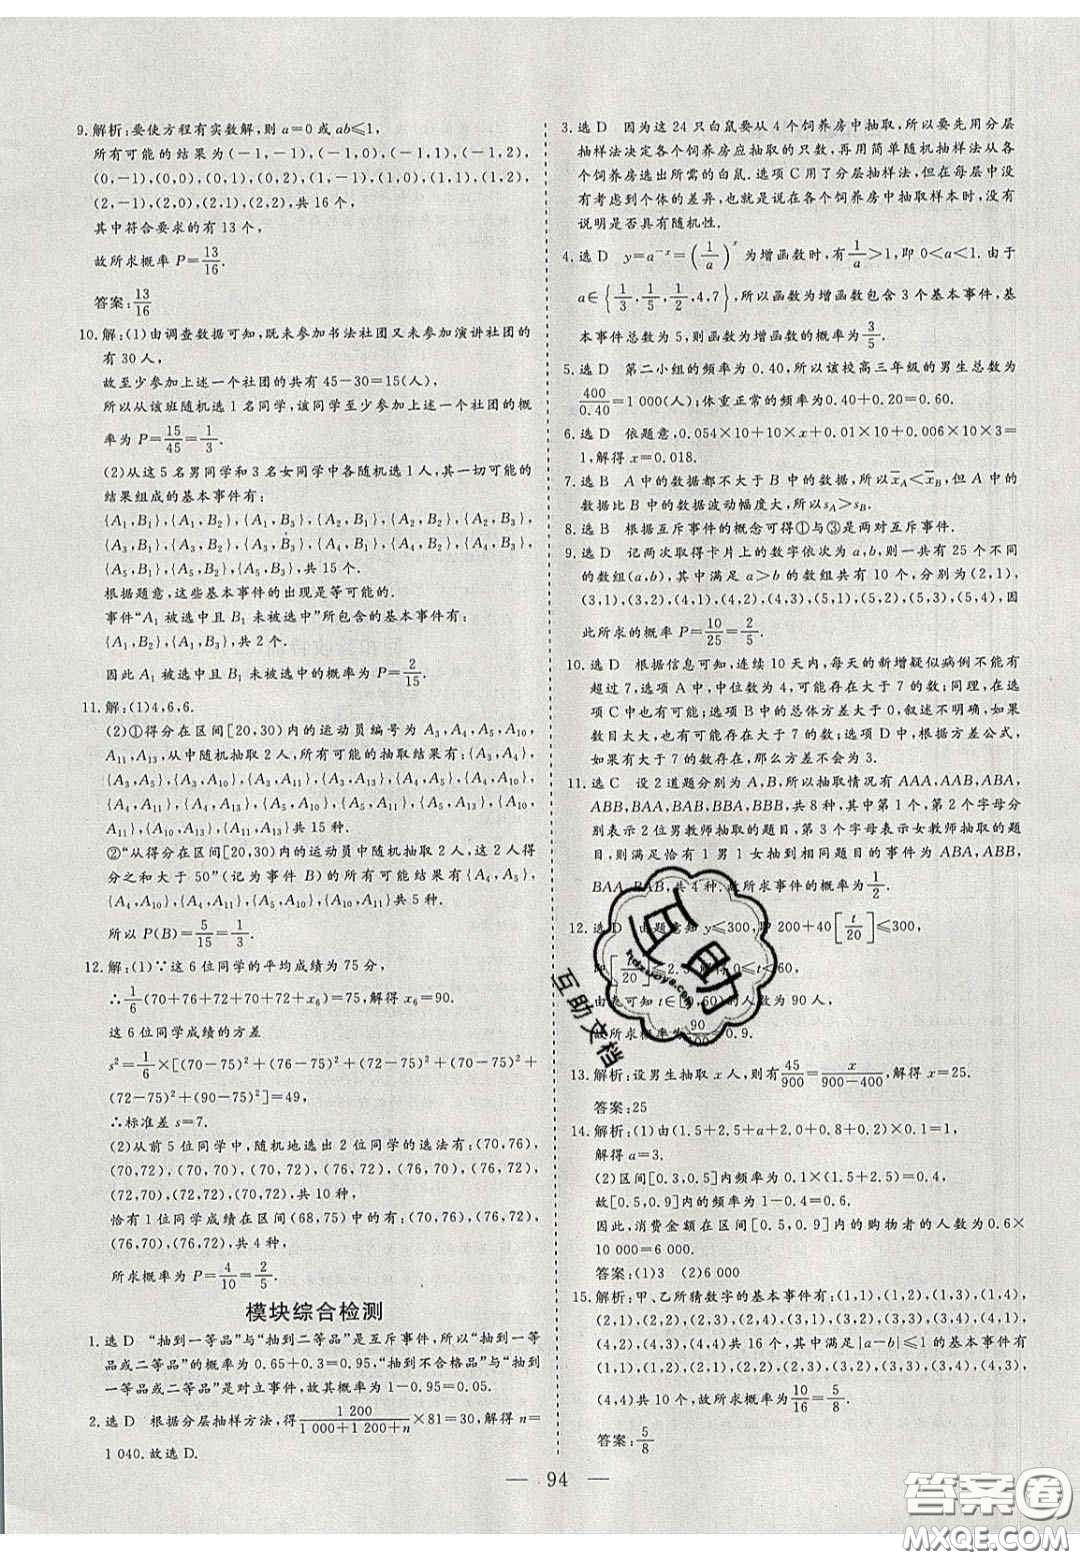 9.解析:要使方程有实数解,则 a=0或ab≤1,
所有可能的结果为(-1,-1),(-1,0),(-1,1),(-1,2),
(0,-1),(0,0),(0,1),(0,2),(1,-1),(1,0),(1,1),(1,2),
(2,-1),(2,0),(2,1),(2,2),共16个,
其中符合要求的有13个,
故所求概率 P=13/16.
答案:13/16
10.解:(1)由调查数据可知,既未参加书法社团又未参加演讲社团的
有30人,
故至少参加上述一个社团的共有45-30=15(人),
所以从该班随机选1名同学,该同学至少参加上述一个社团的概
率为 P=15/45=1/3.
(2)从这5名男同学和3名女同学中各随机选1人,其一切可能的
结果组成的基本事件有:
{A1,B1},{A1,B2},{A1,B3},{A2,B1},{A2,B2},{A2,B3},
{A3,B1},{A3,B2},{A3,B3},{A4,B1},{A4,B2},{A4,B3},
{A5,B1},{A5,B2},{A5,B3},共15个.
根据题意,这些基本事件的出现是等可能的.
事件“A1 被选中且 B1 未被选中”所包含的基本事件有:
{A1,B2},{A1,B3},共2个.
因此 A1 被选中且 B1 未被选中的概率为 P=2/15.
11.解:(1)4,6,6.
(2)①得分在区间[20,30)内的运动员编号为 A3,A4,A5,A10,
A11,A13,从中随机抽取2人;所有可能的抽取结果有:{A3,A4},
{A3,A5},{A3,A10},{A3,A11},{A3,A13},{A4,A5},{A4,
A10},{A4,A11},{A4,A13},{A5,A10},{A5,A11},{A5,A13},{A10,
A11},{A10,A13},{A11,A13}共15种.
②“从得分在区间[20,30)内的运动员中随机抽取2人,这2人得
分之和大于50”(记为事件 B)的所有可能结果有:{A4,A5},
{A4,A10},{A4,A11},{A5,A10},{A10,A11}共5种.
所以 P(B)=5/15=1/3.
12.解:(1)∵这6位同学的平均成绩为75分,
∴1/6(70+76+72+70+72+x6)=75,解得x6=90.
这6位同学成绩的方差
s²=1/6×[(70-75)²+(76-75)²+(72-75)²+(70-75)²+
(72-75)²+(90-75)²]=49,
∴标准差 s=7.
(2)从前5位同学中,随机地选出2位同学的选法有:(70,76),
(70,72),(70,70),(70,72),(76,72),(76,70),(76,72),
(72,70),(72,72),(70,72),共10种,
恰有1位同学成绩在区间(68,75)中的有:(70,76),(76,72),
(76,70),(76,72),共4种,
所求概率为 P=4/10=2/5.
模块综合检测
1.选 D “抽到一等品”与“抽到二等品”是互斥事件,所以“抽到一等
品或二等品”的概率为0.65+0.3=0.95,“抽到不合格品”与“抽到
一等品或二等品”是对立事件,故其概率为1-0.95=0.05.
2.选 D 根据分层抽样方法,得1 200/(1 000+1 200+n)×81=30,解得n=
1 040.故选 D.
3.选 D 因为这24只白鼠要从4个饲养房中抽取,所以要先用分层
抽样法决定各个饲养房应抽取的只数,再用简单随机抽样法从各
个饲养房选出所需的白鼠.选项C用了分层抽样法,但在每层中没
有考虑到个体的差异,也就是说在各个饲养房中抽取样本时,没有
说明是否具有随机性.
4.选 D y=a⁻ˣ=(1/a)ˣ为增函数时,有1/a>1,即0<a<1.由于
a∈{1/3,1/5,1/2,4,7},所以函数为增函数包含3个基本事件,基
本事件总数为5,则函数为增函数的概率为3/5.
5.选 D 第二小组的频率为0.40,所以该校高三年级的男生总数为
400/0.40=1 000(人);体重正常的频率为0.40+0.20=0.60.
6.选 D 依题意,0.054×10+10×x+0.01×10+0.006×10×3=
1,解得 x=0.018.
7.选 B A中的数据都不大于B中的数据,所以x̄A<x̄B,但A中的
数据比B中的数据波动幅度大,所以sA>sB.
8.选 B 根据互斥事件的概念可得①与③是两对互斥事件.
9.选 D 记两次取得卡片上的数字依次为a,b,则一共有25个不同
的数组(a,b),其中满足a>b的数组共有10个,分别为(2,1),
(3,1),(3,2),(4,1),(4,2),(4,3),(5,1),(5,2),(5,3),(5,4),因
此所求的概率 P=10/25=2/5.
10.选 D 根据信息可知,连续10天内,每天的新增疑似病例不能有
超过7,选项A中,中位数为4,可能存在大于7的数;同理,在选
项C中也有可能;选项B中的总体方差大于0,叙述不明确,如果
数目太大,也有可能存在大于7的数;选项D中,根据方差公式,
如果有大于7的数存在,那么方差不会为3.
11.选 C 设2道题分别为A,B,所以抽取情况有AAA,AAB,ABA,
ABB,BAA,BAB,BBA,BBB,共8种,其中第1个,第2个字母分
别表示2位男教师抽取的题目,第3个字母表示女教师抽取的题
目,则满足恰有1男1女抽到相同题目的事件为ABA,ABB,
BAA,BAB,共4种.故所求事件的概率为1/2.
12.选 D 由题意知 y≤300,即200+40[t/20]≤300,
[t/20]≤2.5,解得0≤t<60,
由表可知t∈[0,60)的人数为90人,
故所求概率为90/100=0.9.
13.解析:设男生抽取x人,则有45/900=x/(900-400),解得 x=25.
答案:25
14.解析:(1)由(1.5+2.5+a+2.0+0.8+0.2)×0.1=1,
解得 a=3.
(2)区间[0.3,0.5]内频率为0.1×(1.5+2.5)=0.4,
故[0.5,0.9]内的频率为1-0.4=0.6.
因此,消费金额在区间[0.5,0.9]内的购物者的人数为0.6×
10 000=6 000.
答案:(1)3 (2)6 000
15.解析:甲、乙所猜数字的基本事件有:(1,1),(1,2),(1,3),(1,4),
(2,1),(2,2),(2,3),(2,4),(3,1),(3,2),(3,3),(3,4),(4,1),
(4,2),(4,3),(4,4)共16个,其中满足|a-b|≤1的基本事件有
(1,1),(1,2),(2,1),(2,2),(2,3),(3,2),(3,3),(3,4),(4,3),
(4,4)共10个,故所求概率为10/16=5/8.
答案:5/8
互助
hdzuoye.com
互助文档
— 94 —
答案圈
MXQE.COM